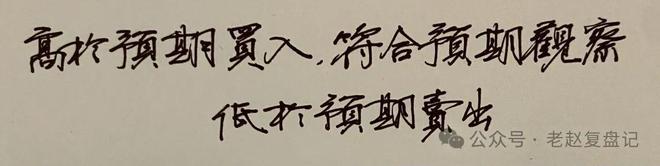 高於預期買入,符合預期觀察
低於預期賣出
公众号·老赵复盘记